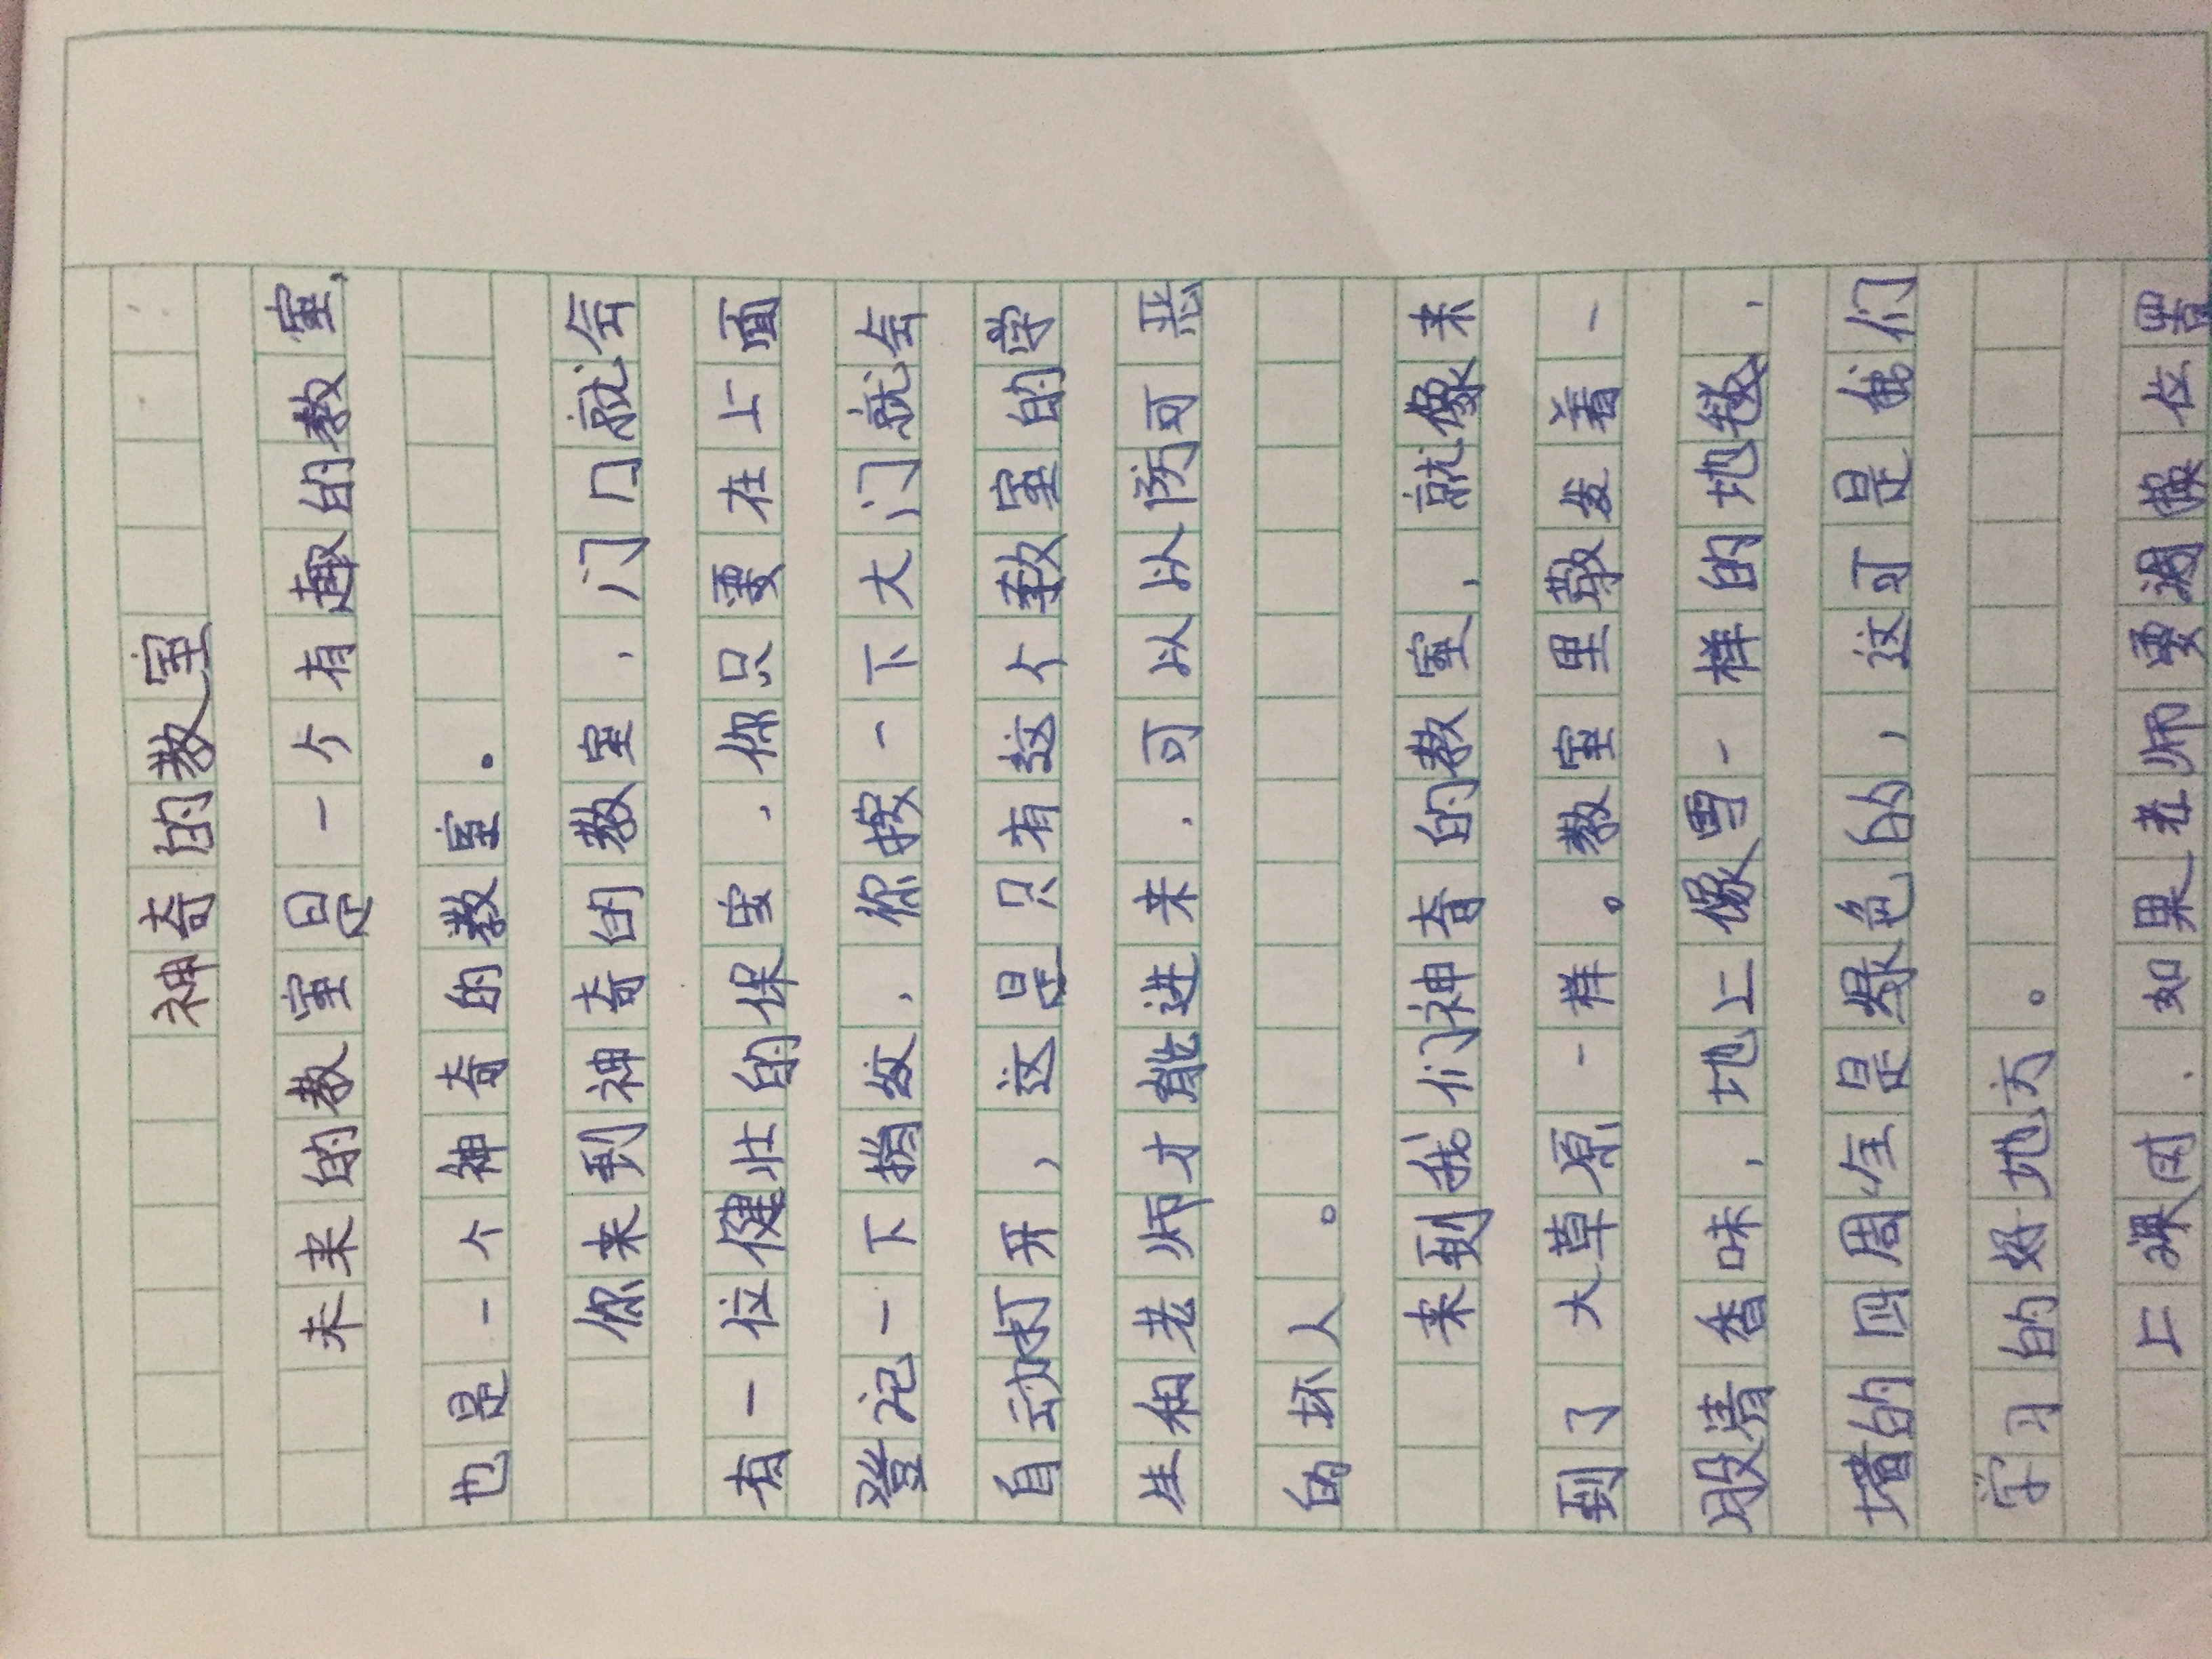 神奇的教室
未来的教室是一个有趣的教室,
也是一个神奇的教室。
你来到神奇的教室,门口就会
有一位健壮的保安,你只要在上面
登记一下指纹,你按一下大门就会
自动打开,这是只有这个教室的学
生和老师才能进来,可以以防可恶
的坏人。
来到我们神奇的教室,就像来
到了大草原一样。教室里散发着一
股清香味,地上像雪一样的地毯,
墙的四周全是绿色的,这可是我们
学习的好地方。
上课间,如果老师要调换位置